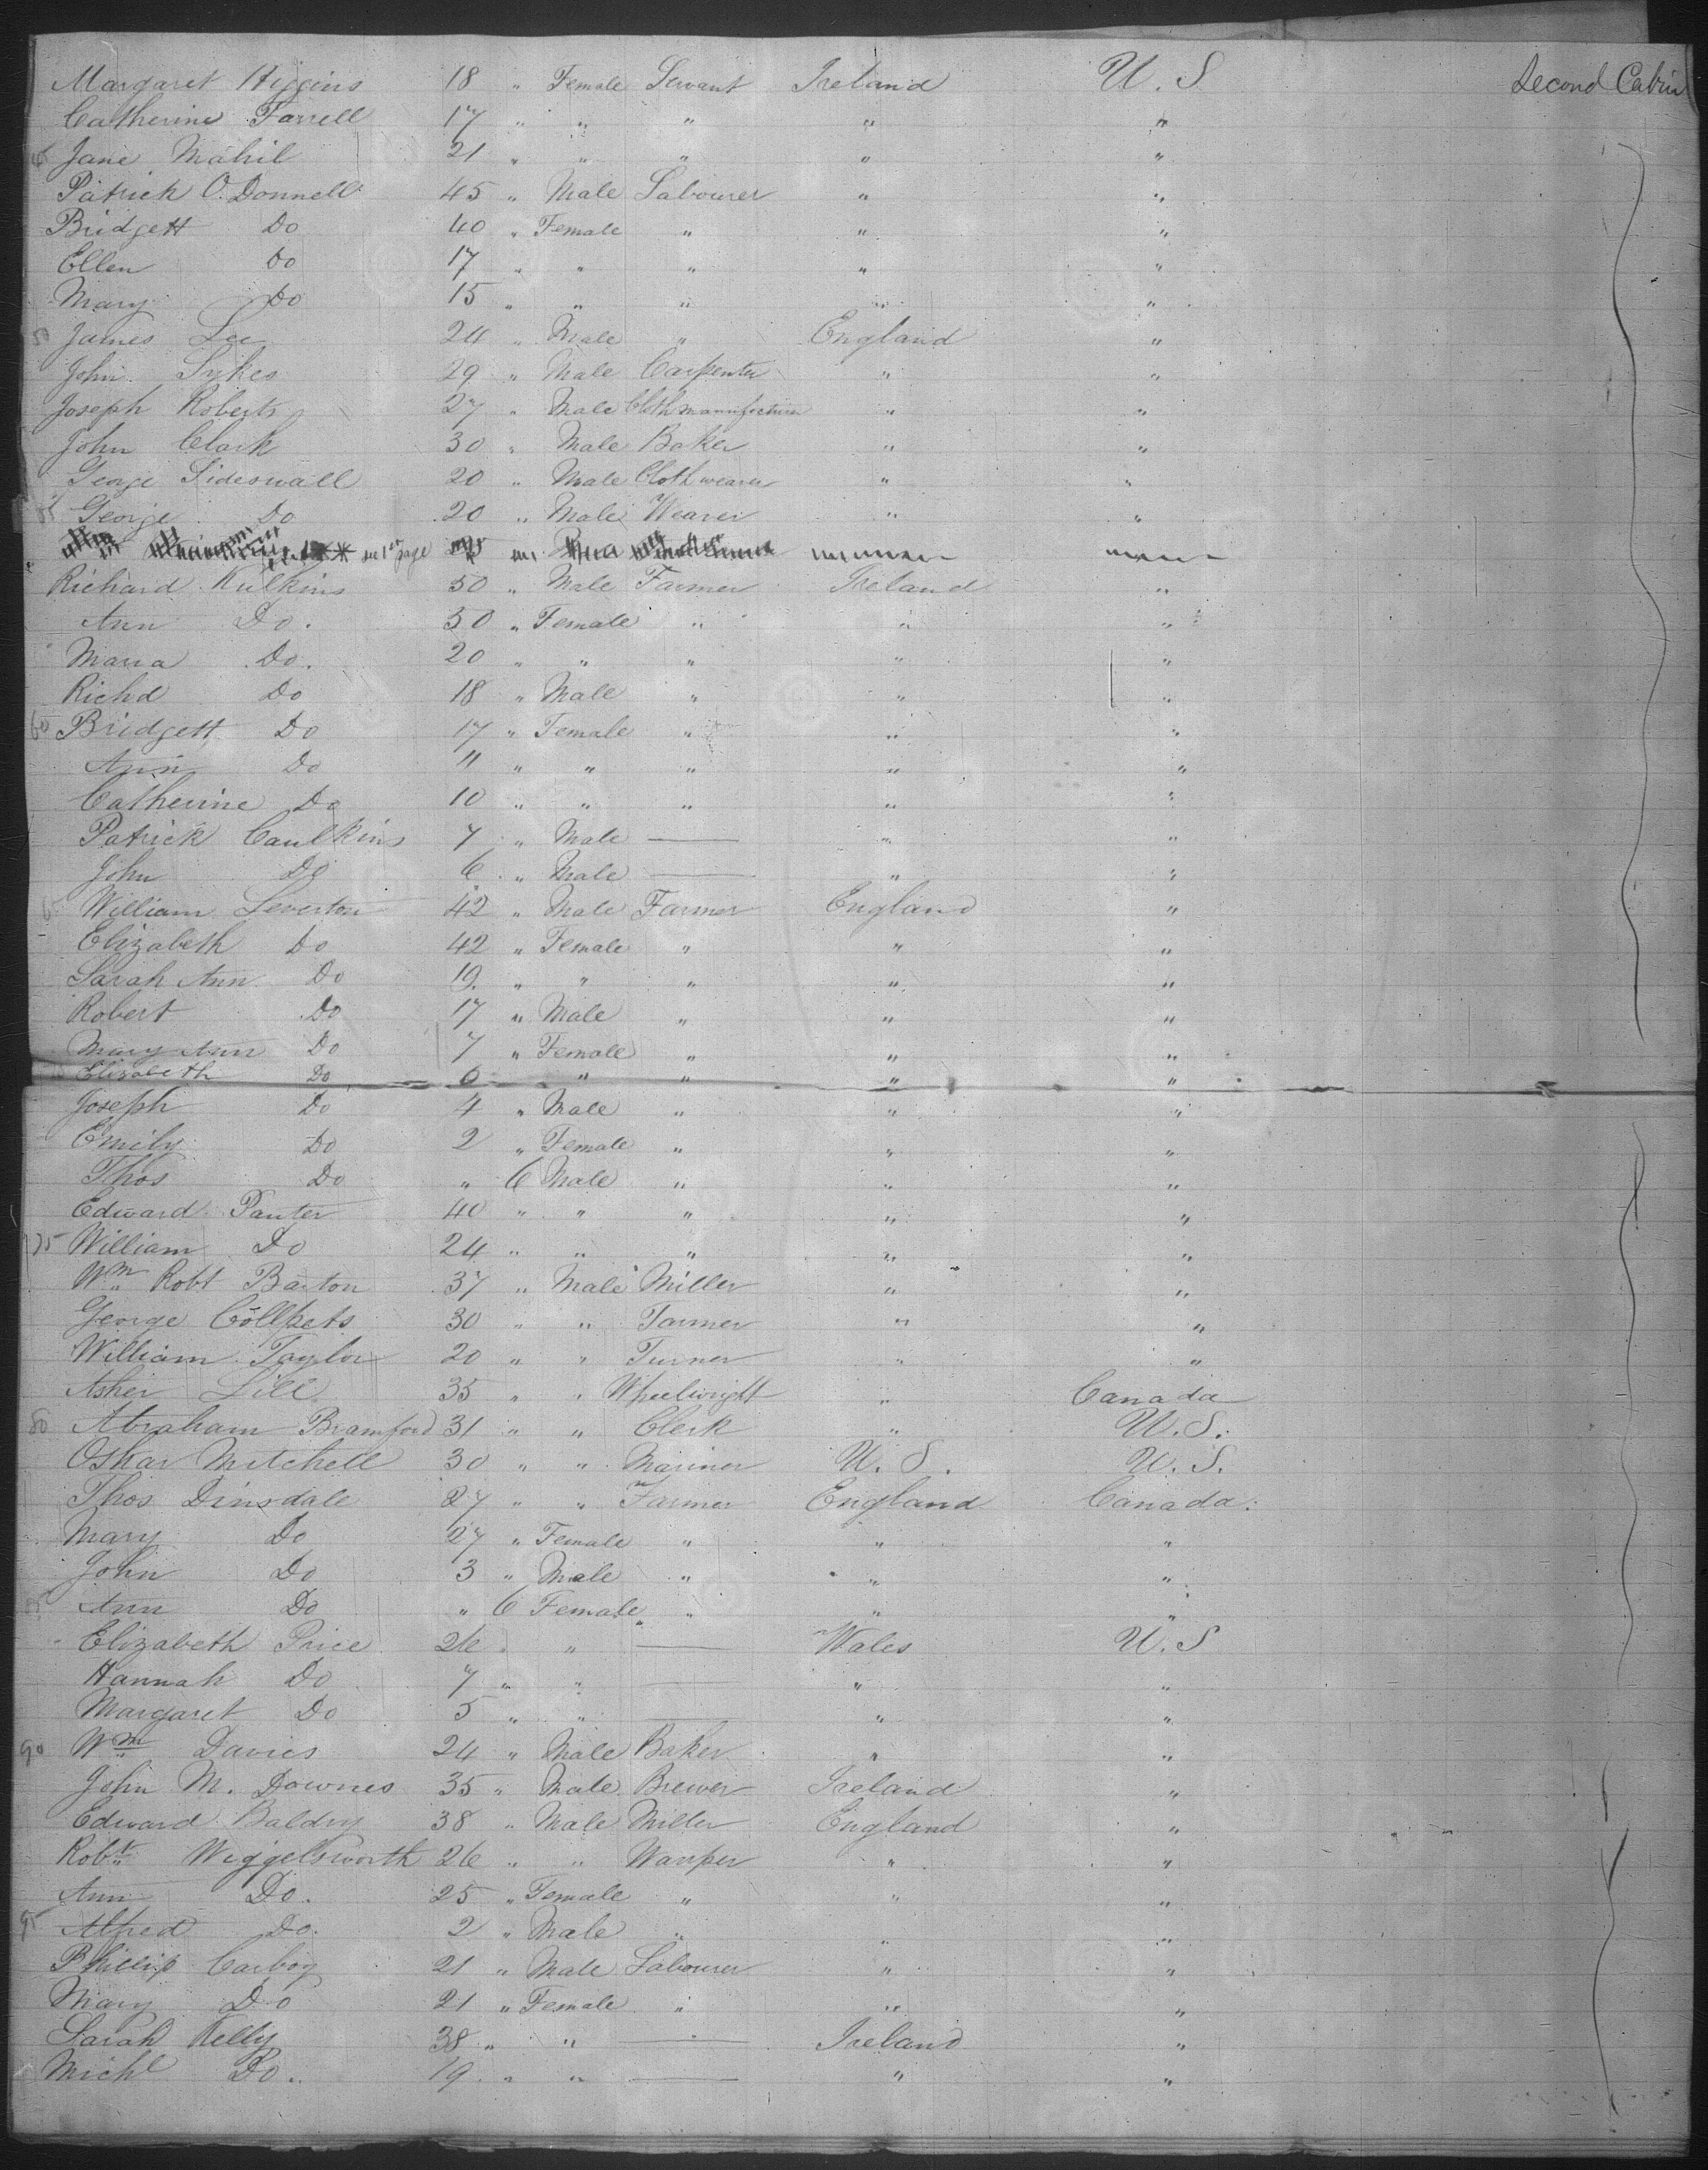 Margaret Higgins 18 " Female Servant Ireland U.S Second Cabin
Catherine Farrell 17 " " " " "
Jane Mahil 21 " " " " "
Patrick O.Donnell 45 " Male Labourer " "
Bridgett Do 40 " Female " " "
Ellen Do 17 " " " " "
Mary Do 15 " " " " "
50 James Lee 24 " Male " England "
John Sykes 29 " Male Carpenter " "
Joseph Roberts 27 " Male Cloth manufacturer " "
John Clark 30 " Male Baker " "
George Sideswall 20 " Male Cloth weaver " "
George Do 20 " Male Weaver " "
on 1st page
Richard Kulkins 50 " Male Farmer Ireland "
Ann Do. 50 " Female " " "
Maria Do. 20 " " " " "
Richd Do 18 " Male " " "
60 Bridgett Do 17 " Female " " "
Ann Do 11 " " " " "
Catherine Do 10 " " " " "
Patrick Caulkins 7 " Male — " "
John Do 6 " Male — " "
William Leverton 42 " Male Farmer England "
Elizabeth Do 42 " Female " " "
Sarah Ann Do 19. " " " " "
Robert Do 17 " Male " " "
Mary Ann Do 7 " Female " " "
Elizabeth Do 6 " " " "
Joseph Do 4 " Male " " "
Emily Do 2 " Female " " "
Thos Do " 6 Male " " "
Edward Panter 40 " " " " "
75 William Do 24 " " " " "
Wm Robt Barton 37 " Male Miller " "
George Collpets 30 " " Farmer " "
William Taylor 20 " " Turner " "
Asher Lill 35 " " Wheelwright " Canada
80 Abraham Bramford 31 " " Clerk " U.S.
Oskar Mitchell 30 " " Mariner U.S. U.S.
Thos Dinsdale 27 " " Farmer England Canada.
Mary Do 27 " Female " " "
John Do 3 " Male " " "
Ann Do " 6 Female " " "
Elizabeth Price 26 " " — Wales U.S
Hannah Do 7 " " — " "
Margaret Do 5 " " — " "
90 Wm Davies 24 " Male Baker " "
John M. Downes 35 " Male Brewer Ireland "
Edward Baldry 38 " Male Miller England "
Robt Wiggelsworth 26 " " Warper " "
Ann Do. 25 " Female " " "
95 Alfred Do. 2 " Male " " "
Phillip Carboy 21 " Male Labourer " "
Mary Do 21 " Female " " "
Sarah Kelly 38 " " — Ireland "
Michl Do.. 19. " " — " "